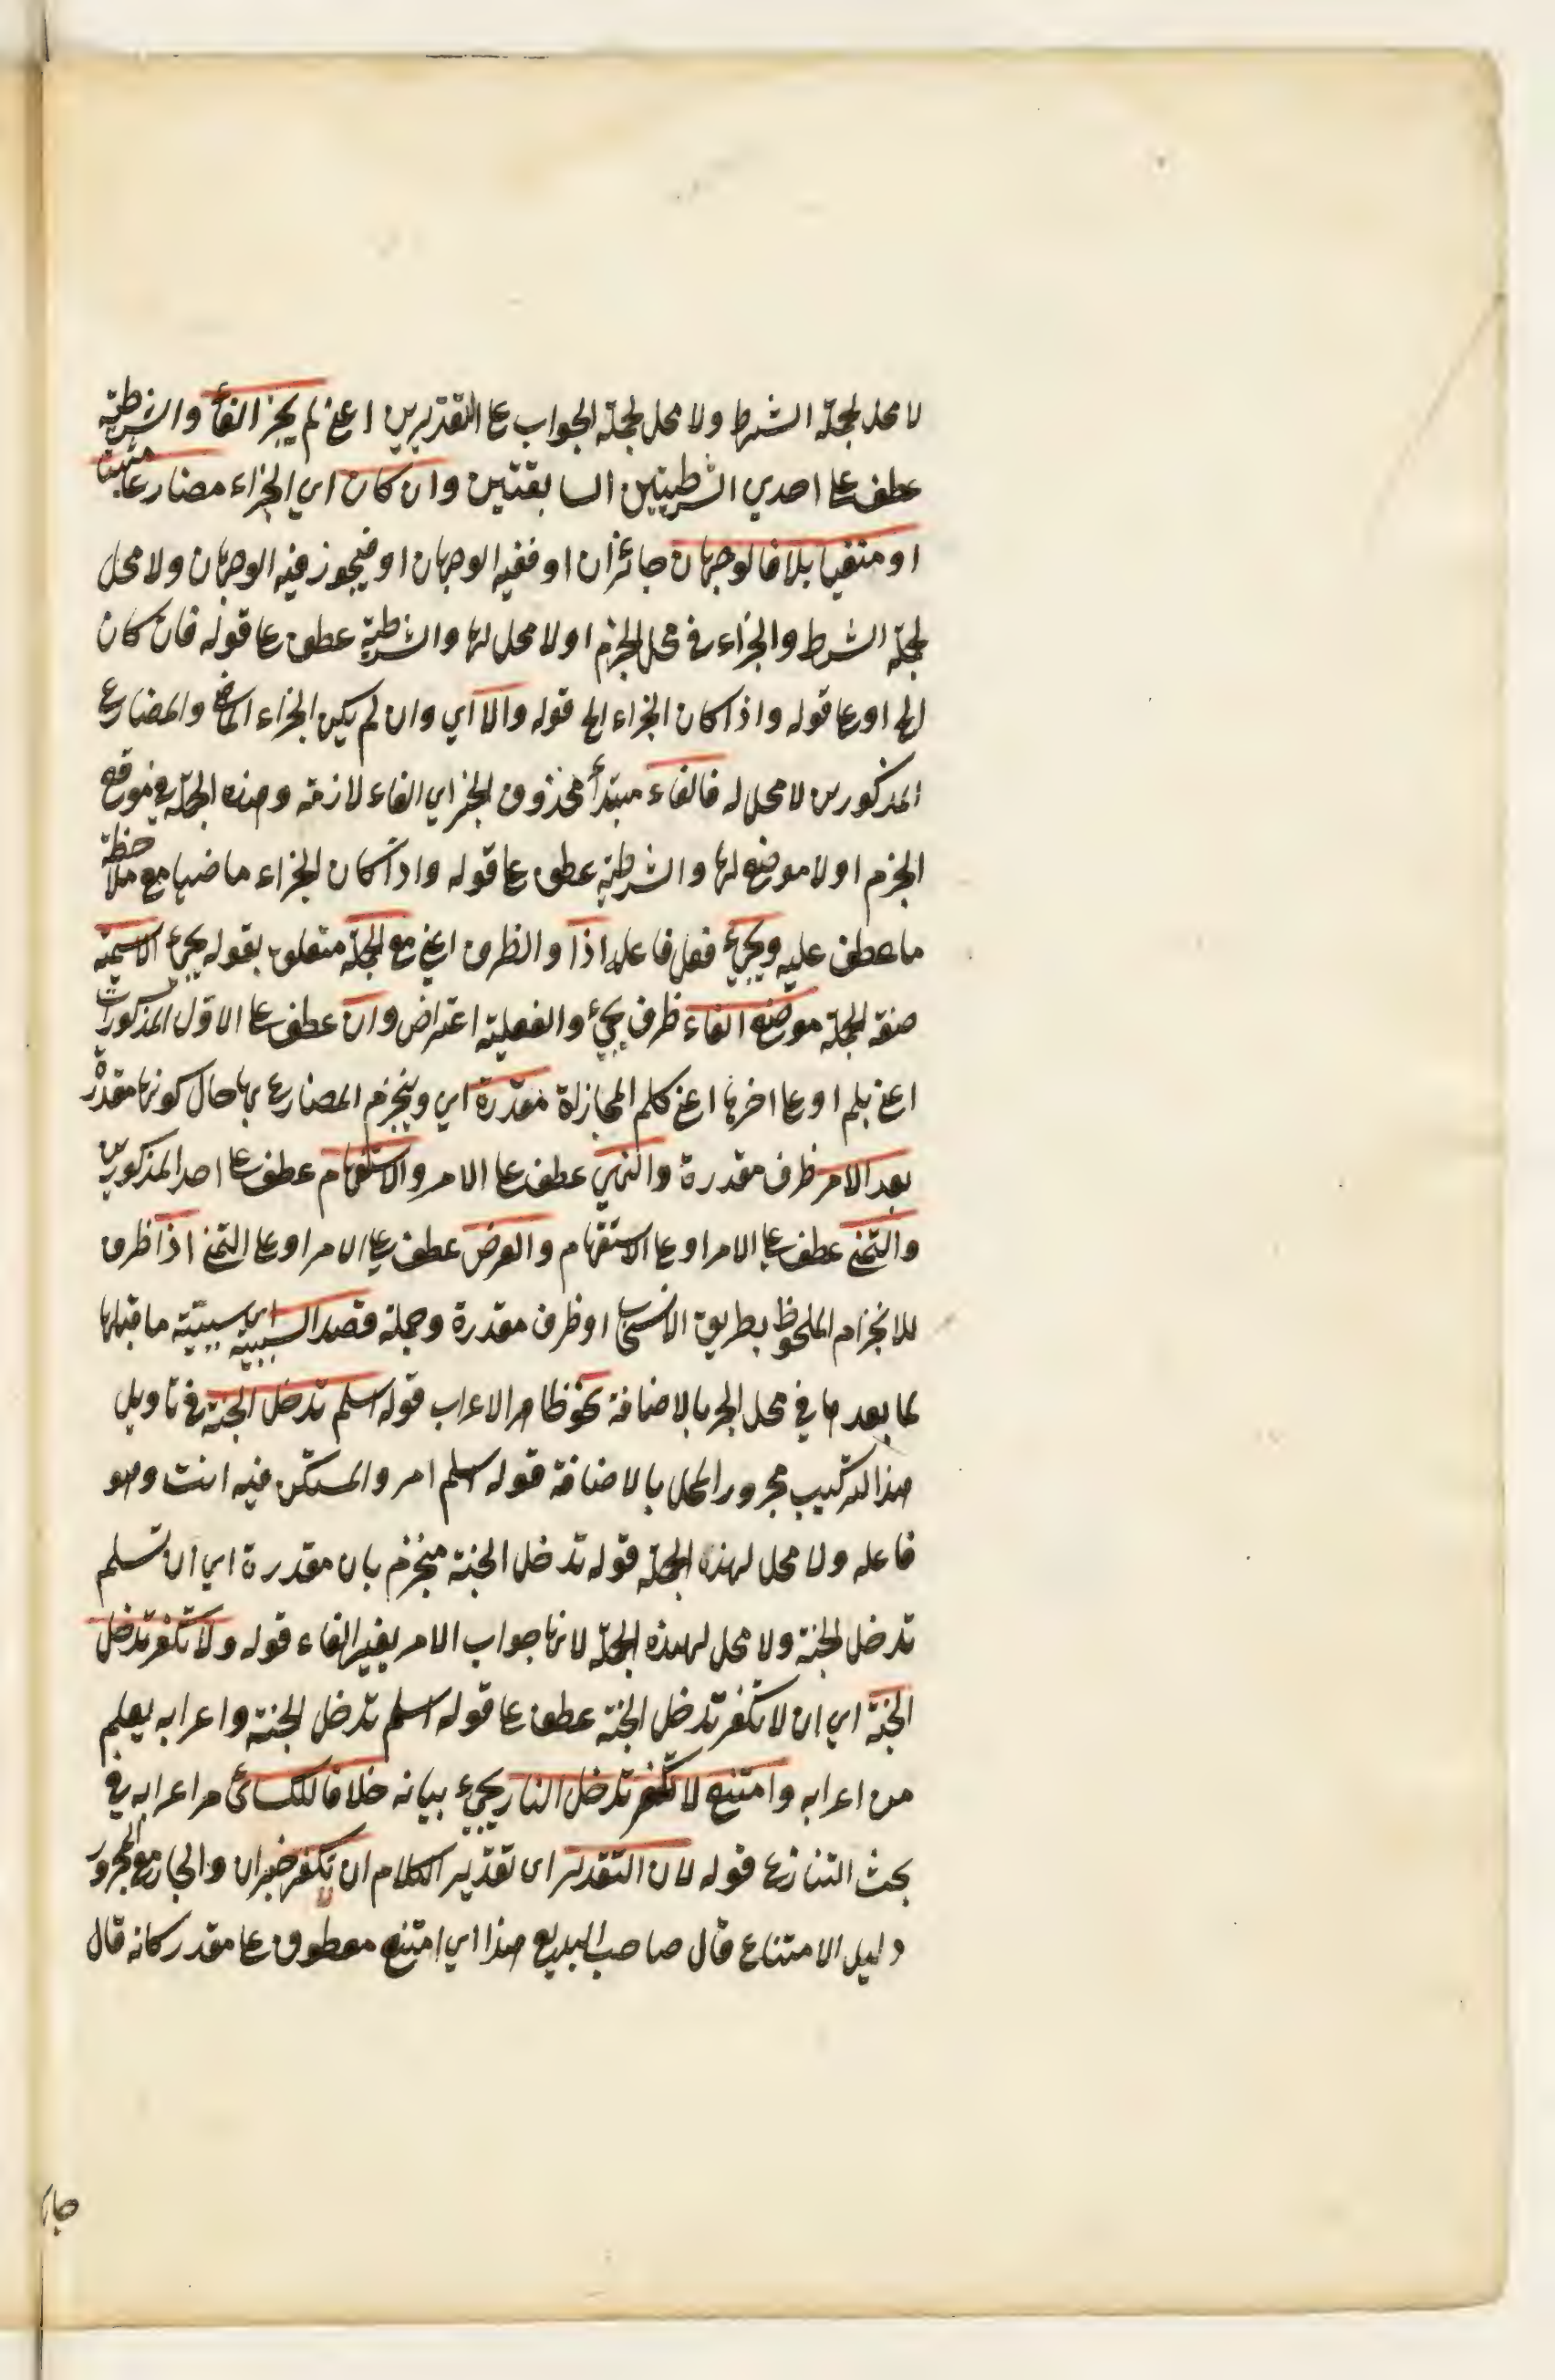 لا محل لجملة الشرط ولا محل لجملة الجواب عا التقديرين اعني لم يجز الفاء والشرطية
عطف عا احدي الشرطيتين السابقتين وان كان اي الجزاء مضارعا مثبتا
او منفيا بلا فالوجهان جائزان او ففيه الوجهان او فيجوز فيه الوجهان ولا محل
لجملة الشرط والجزاء في محل الجزم او لا محل لها والشرطية عطف عا قوله فان كان
الخ او عا قوله واذا كان الجزاء الخ قوله والا اي وان لم يكن الجزاء الماضي والمضارع
المذكورين لا محل له فالفاء مبتدأ محذوف الخبر اي الفاء لازمة وهذه الجملة في موقع
الجزم او لا موضع لها والشرطية عطف عا قوله واذا كان الجزاء ماضيا مع ملاحظة
ما عطف عليه ويجيء فعل فاعله اذا والظرف اعني مع الجملة متعلق بقوله يجيء الاسمية
صفة الجملة موضع الفاء ظرف يجيء والفعلية اعتراض وان عطف عا الاول المذكورات
اعني بلم او عا اخرها اعني كلم المجازاة مقدرة اي وينجزم المضارع بها حال كونها مقدرة
بعد الامر ظرف مقدرة والنهي عطف عا الامر والاستفهام عطف عا احد المذكورين
والتمني عطف عا الامر او عا الاستفهام والعرض عطف عا الامر او عا التمني اذا ظرف
للانجزام الملحوظ بطريق الانسحاب او ظرف مقدرة وجملة قصد السببية اي سببية ما قبلها
لما بعدها في محل الجر بالاضافة نحو ظاهر الاعراب قوله اسلم تدخل الجنة في تاويل
هذا التركيب مجرور المحل بالاضافة قوله اسلم امر والمستكن فيه انت وهو
فاعله ولا محل لهذه الجملة قوله تدخل الجنة منجزم بان مقدرة اي ان تسلم
تدخل الجنة ولا محل لهذه الجملة لانها جواب الامر بغير الفاء قوله ولا تكفر تدخل
الجنة اي ان لا تكفر تدخل الجنة عطف عا قوله اسلم تدخل الجنة واعرابه يعلم
من اعرابه وامتنع لا تكفر تدخل النار يجيء بيانه خلافا للكسائي مر اعرابه في
بحث التنازع قوله لان التقدير اي تقدير الكلام ان تكفر خبر ان والجار مع المجرور
دليل الامتناع قال صاحب البديع هذا اي امتنع معطوف عا مقدر كانه قال